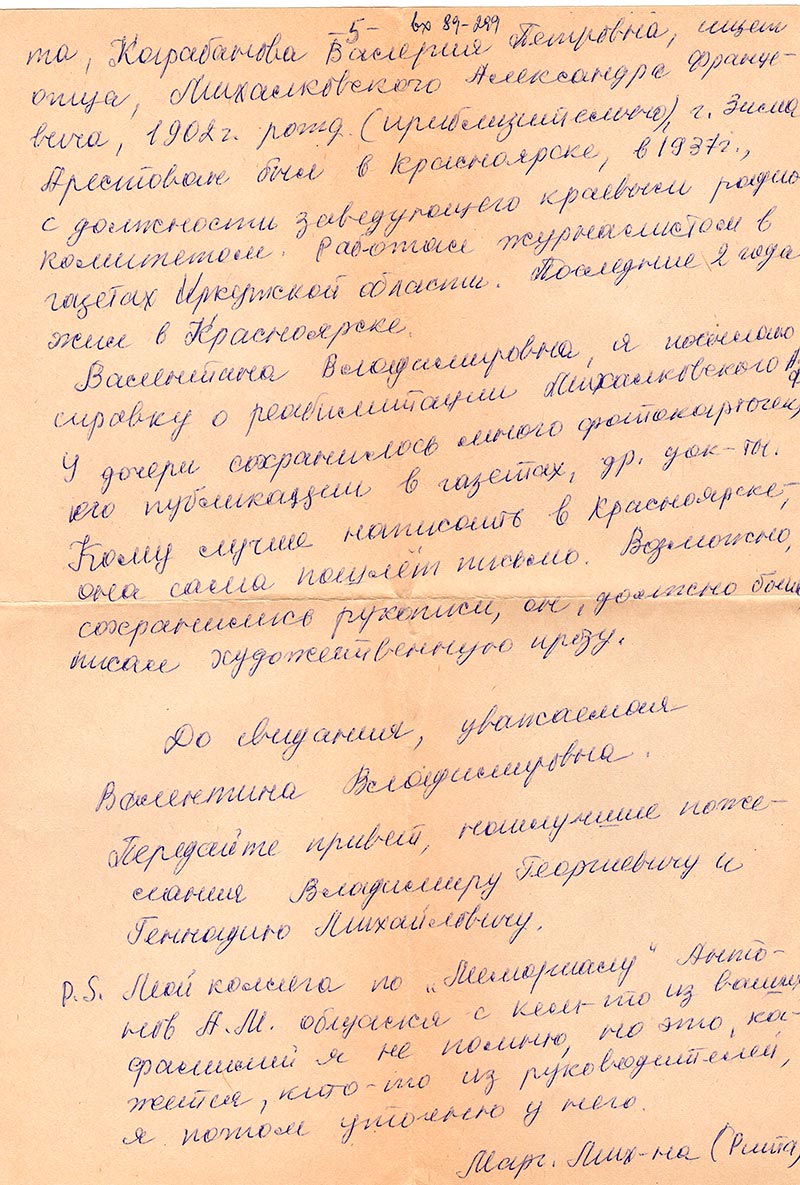 -5- вх 89-299
та, Карабанова Валерия Петровна, ищет
отца, Михалковского Александра Франце-
вича, 1902 г. рожд. (приблизительно), г. Зима
Арестован был в Красноярске, в 1937 г.,
с должности заведующего краевым радио
комитетом. Работал журналистом в
газетах Иркутской области. Последние 2 года
жил в Красноярске.
Валентина Владимировна, я посылаю
справку о реабилитации Михалковского А.Ф.
У дочери сохранилось много фотокарточек,
его публикации в газетах, др. док-ты.
Кому лучше написать в Красноярске,
она сама пошлёт письмо. Возможно,
сохранились рукописи, он, должно быть
писал художественную прозу.
До свидания, уважаемая
Валентина Владимировна.
Передайте привет, наилучшие поже-
лания Владимиру Георгиевичу и
Геннадию Михайловичу.
P.S. Мой коллега по „Мемориалу" Анто-
нов А.М. общался с кем-то из ваших
фамилий я не помню, но это, ка-
жется, кто-то из руководителей,
я потом уточню у него.
Марг. Мих-на (Рита)